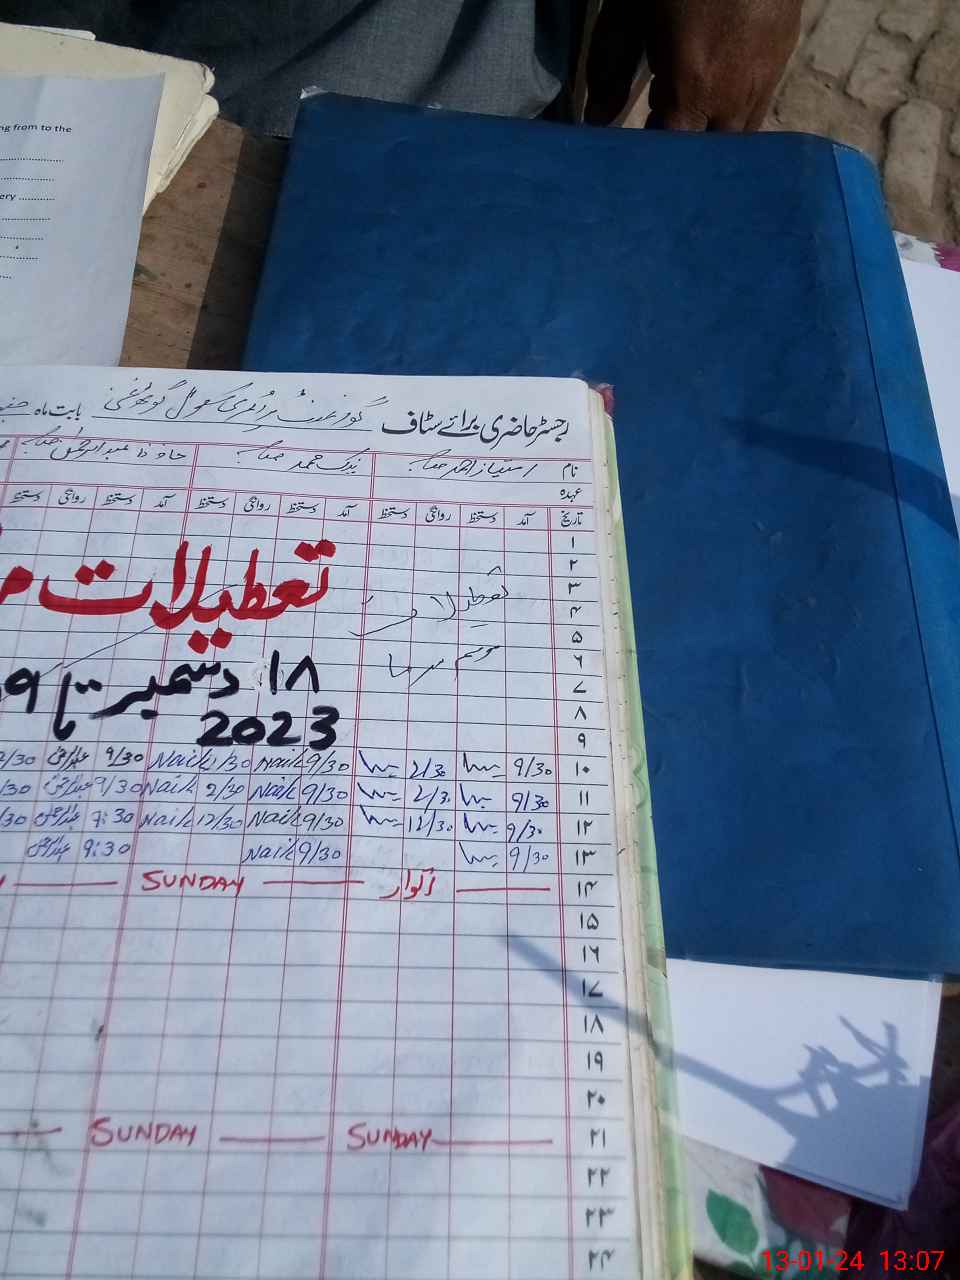 ng from to the
ery
رجسٹر حاضری برائے سٹاف گورنمنٹ پرائمری سکول بابت ماہ
نام
عہدہ
تاریخ آمد دستخط روانگی دستخط آمد دستخط روانگی دستخط آمد دستخط روانگی دستخط
۱
۲
۳ تعطیلات
۴ تعطیلات
۵
۶ موسم سرما
۷ ۱۸ دسمبر تا ۹
۸ 2023
۹
۱۰ 9/30 2/30 9/30 Naik 2/30 Naik 9/30 2/30
۱۱ 9/30 2/30 9/30 Naik 2/30 Naik 9/30 /30
۱۲ 9/30 12/30 9/30 Naik 12/30 Naik 9:30 /30
۱۳ 9/30 9/30 Naik 9:30
۱۴ اتوار SUNDAY
۱۵
۱۶
۱۷
۱۸
۱۹
۲۰
۲۱ SUNDAY SUNDAY
۲۲
۲۳
۲۴
13-01-24 13:07